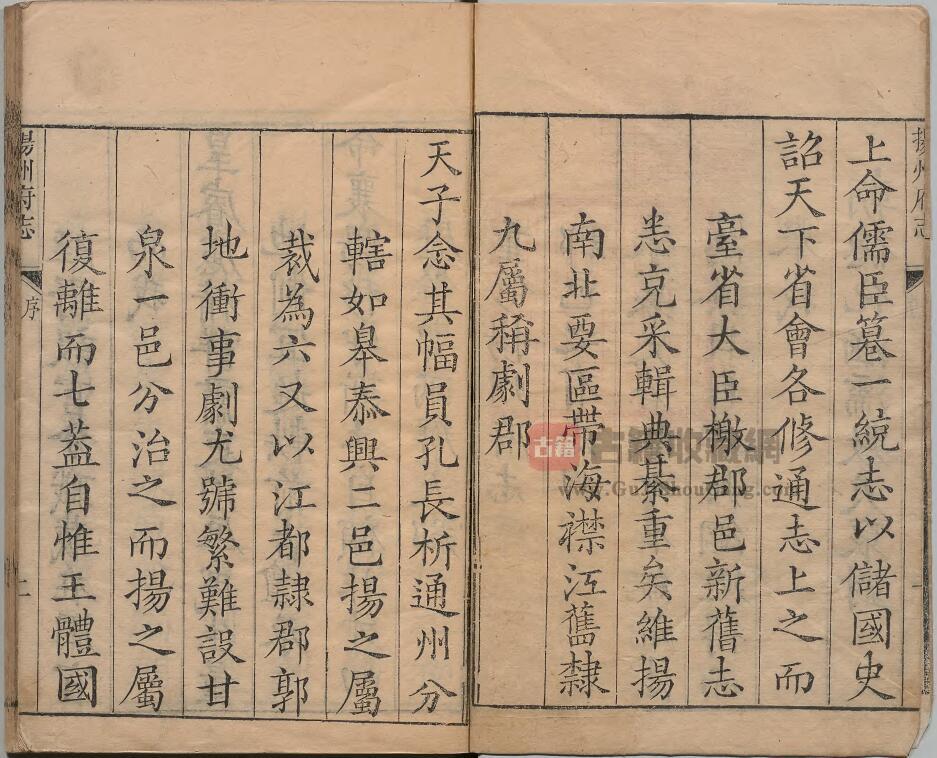 揚州府志
上命儒臣纂一統志以儲國史
詔天下省會各修通志上之而
臺省大臣檄郡邑新舊志
悉克采輯典綦重矣維揚
南北要區帶海襟江舊隸
九屬稱劇郡
天子念其幅員孔長析通州分
轄如臯泰興二邑揚之屬
裁為六又以江都隷郡郭
地衝事劇尤號繁難設甘
泉一邑分治之而揚之屬
復離而七葢自惟王體國
揚州府志 序 二
古籍
古籍收藏網